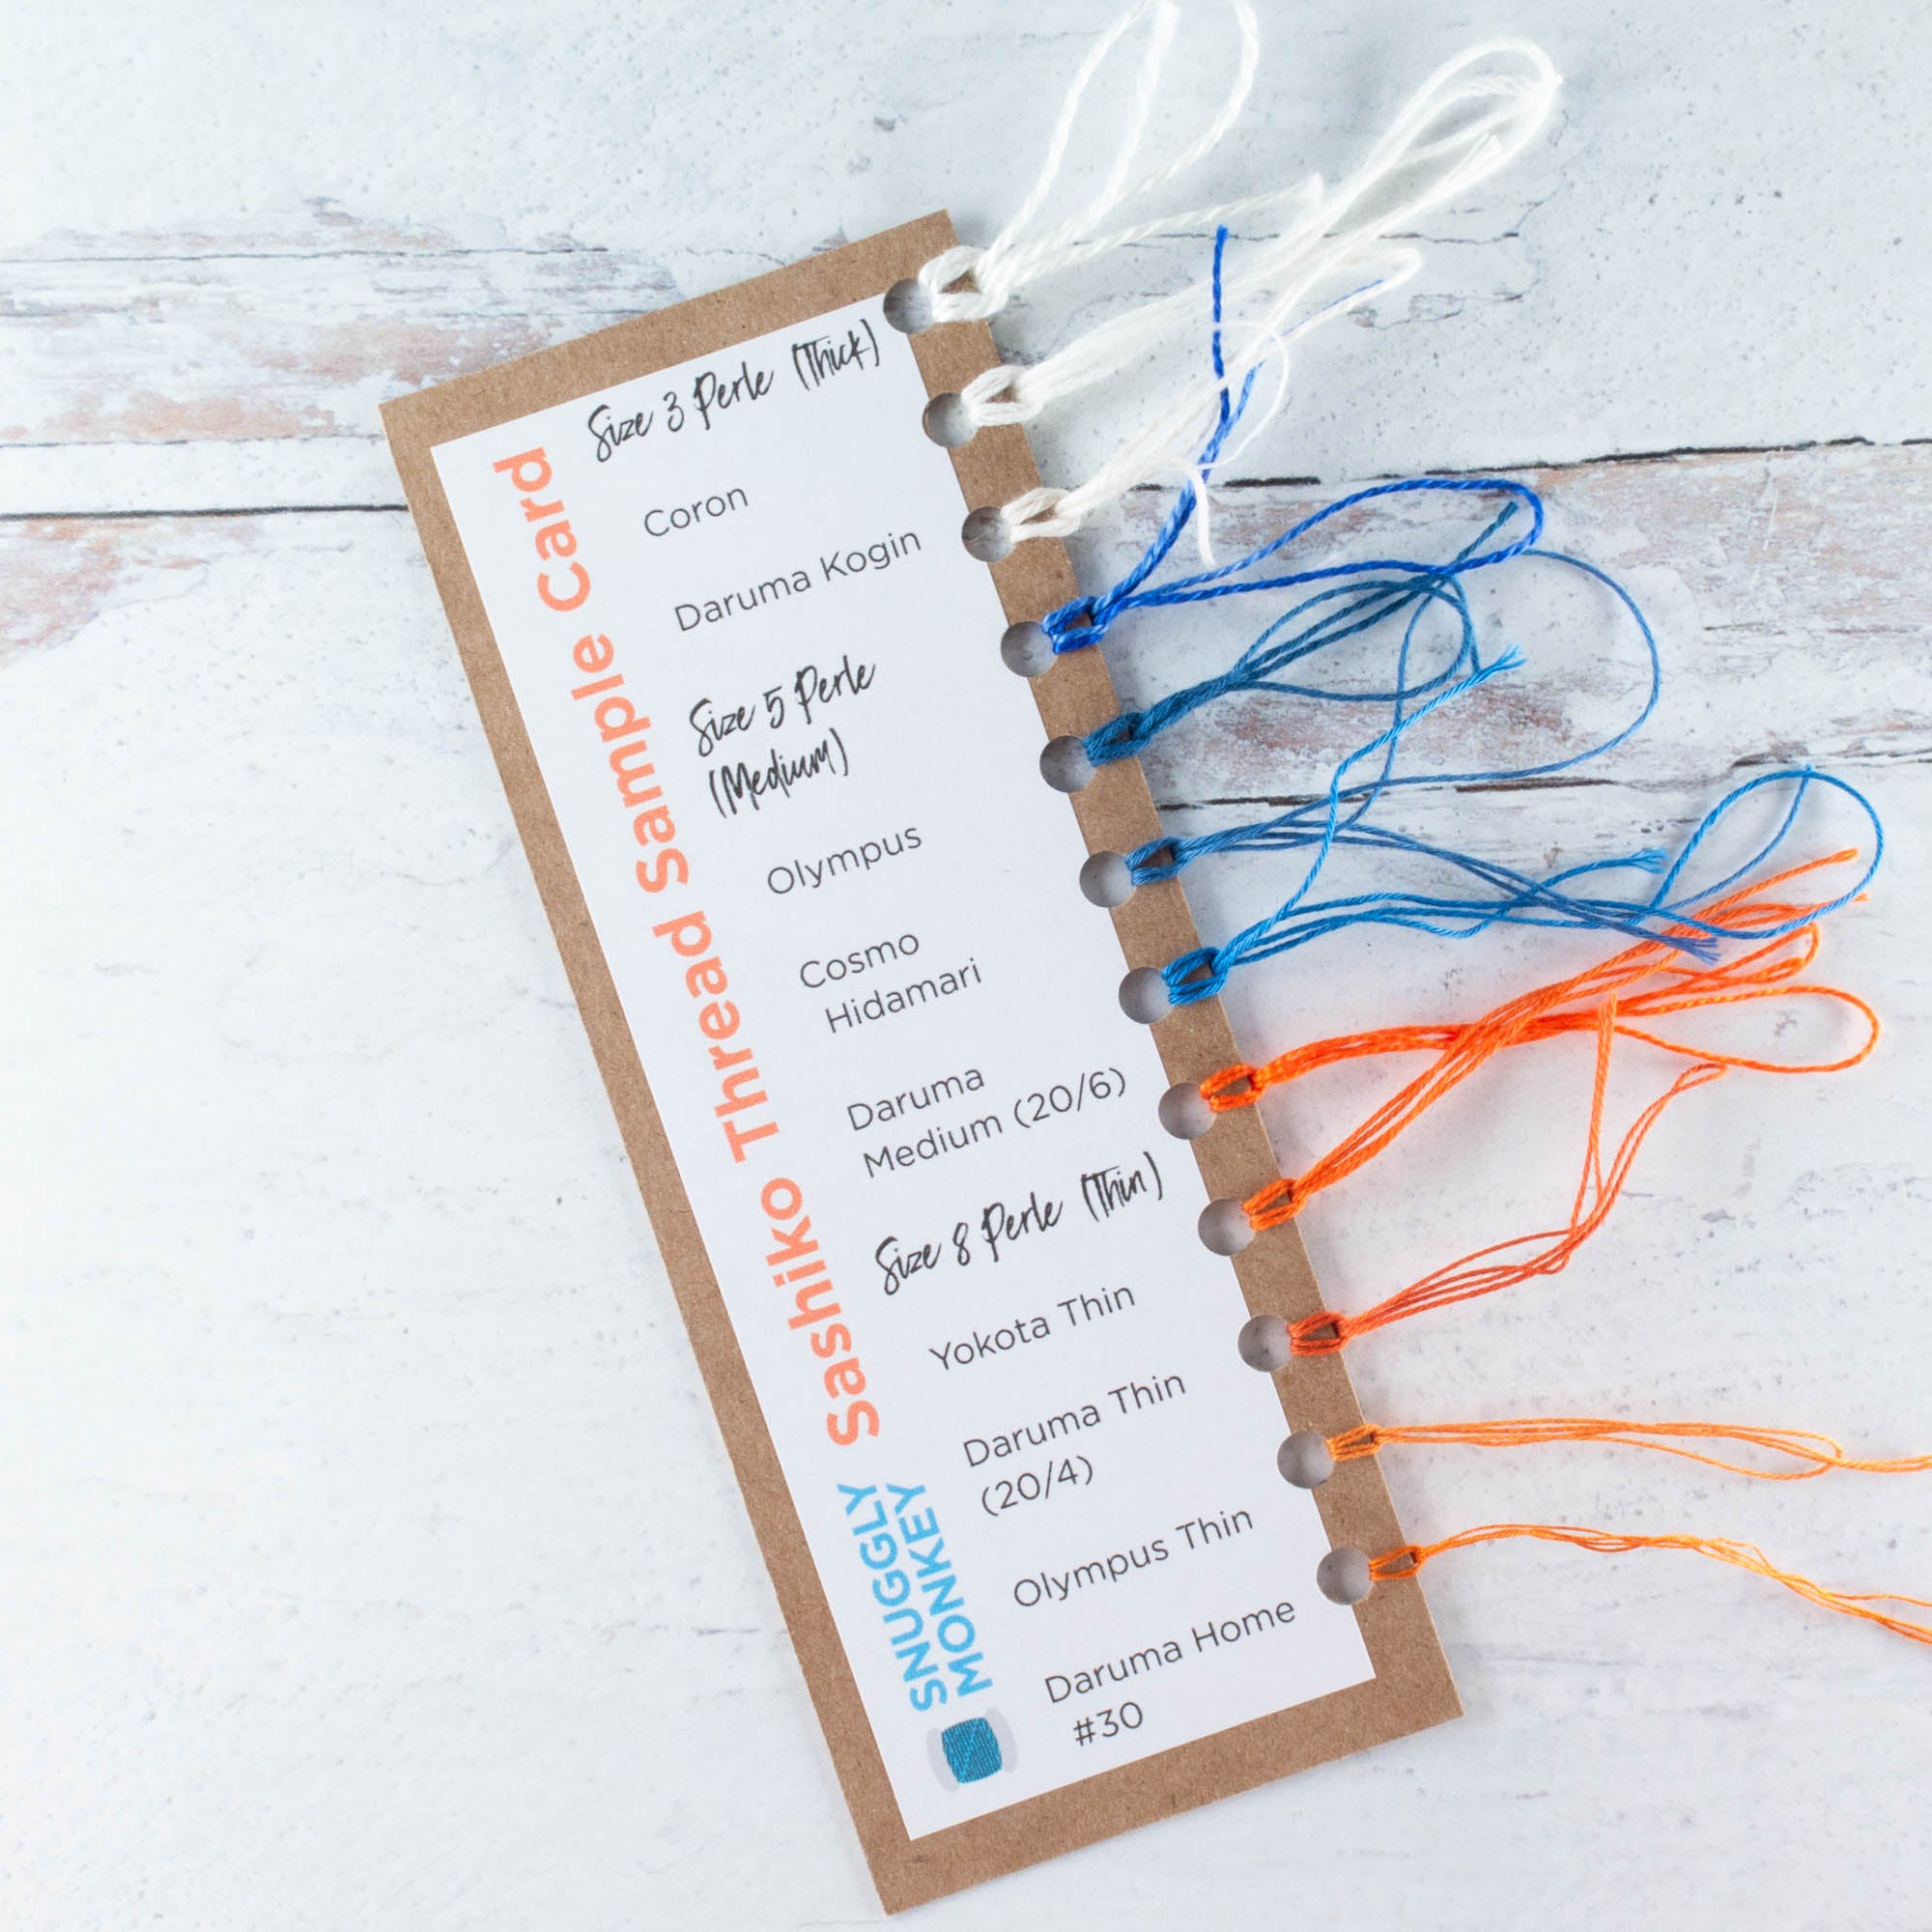 Sashiko Thread Sample Card
SNUGGLY
MONKEY
Size 3 Perle (Thick)
Coron
Daruma Kogin
Size 5 Perle
(Medium)
Olympus
Cosmo
Hidamari
Daruma
Medium (20/6)
Size 8 Perle (Thin)
Yokota Thin
Daruma Thin
(20/4)
Olympus Thin
Daruma Home
#30